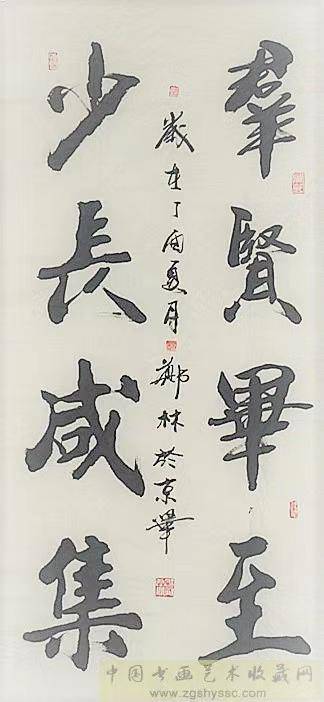 羣賢畢至
少長咸集
歲在丁酉夏月鄭林於京華
中国书画艺术收藏网
www.zgshyssc.com